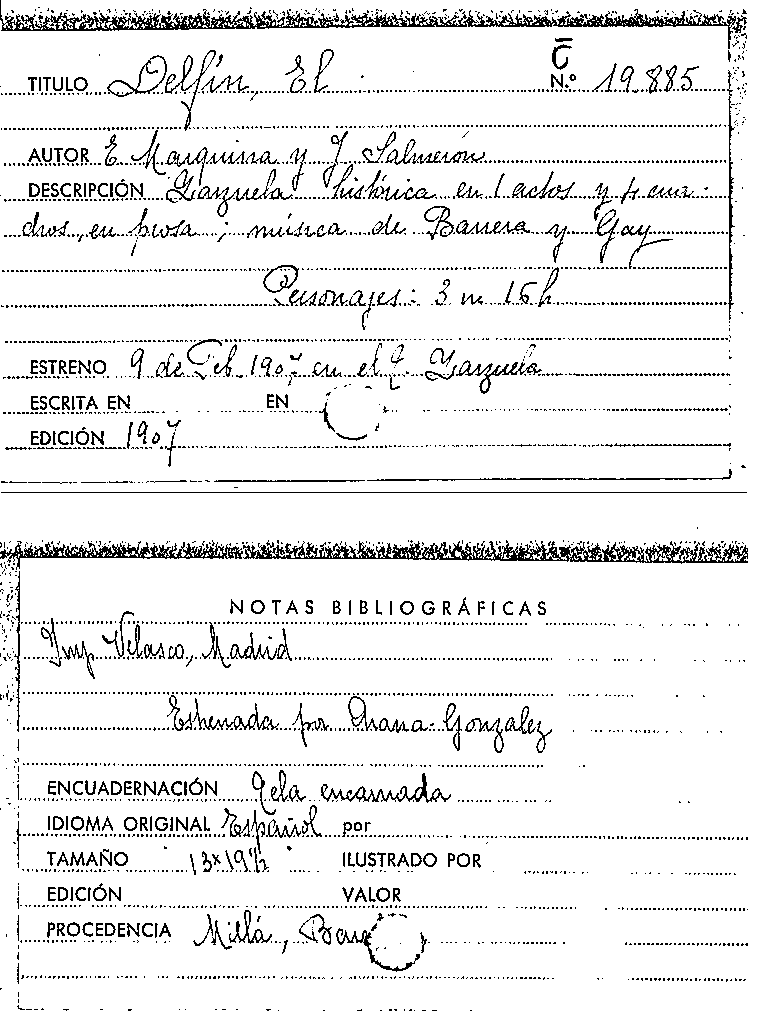 C̄
TITULO Delfín, El N.º 19.885
AUTOR E. Marquina y J. Salmerón
DESCRIPCIÓN Zarzuela histórica en 1 actos y 4 cua-
dros, en prosa; música de Barrera y Gay
Personajes: 3 m 16 h
ESTRENO 9 de Feb. 1907 en el T. Zarzuela
ESCRITA EN EN
EDICIÓN 1907
NOTAS BIBLIOGRÁFICAS
Imp Velasco, Madrid
Estrenada por Arana-Gonzalez
ENCUADERNACIÓN Tela encarnada
IDIOMA ORIGINAL Español por
TAMAÑO 13x19½ ILUSTRADO POR
EDICIÓN VALOR
PROCEDENCIA Millá,